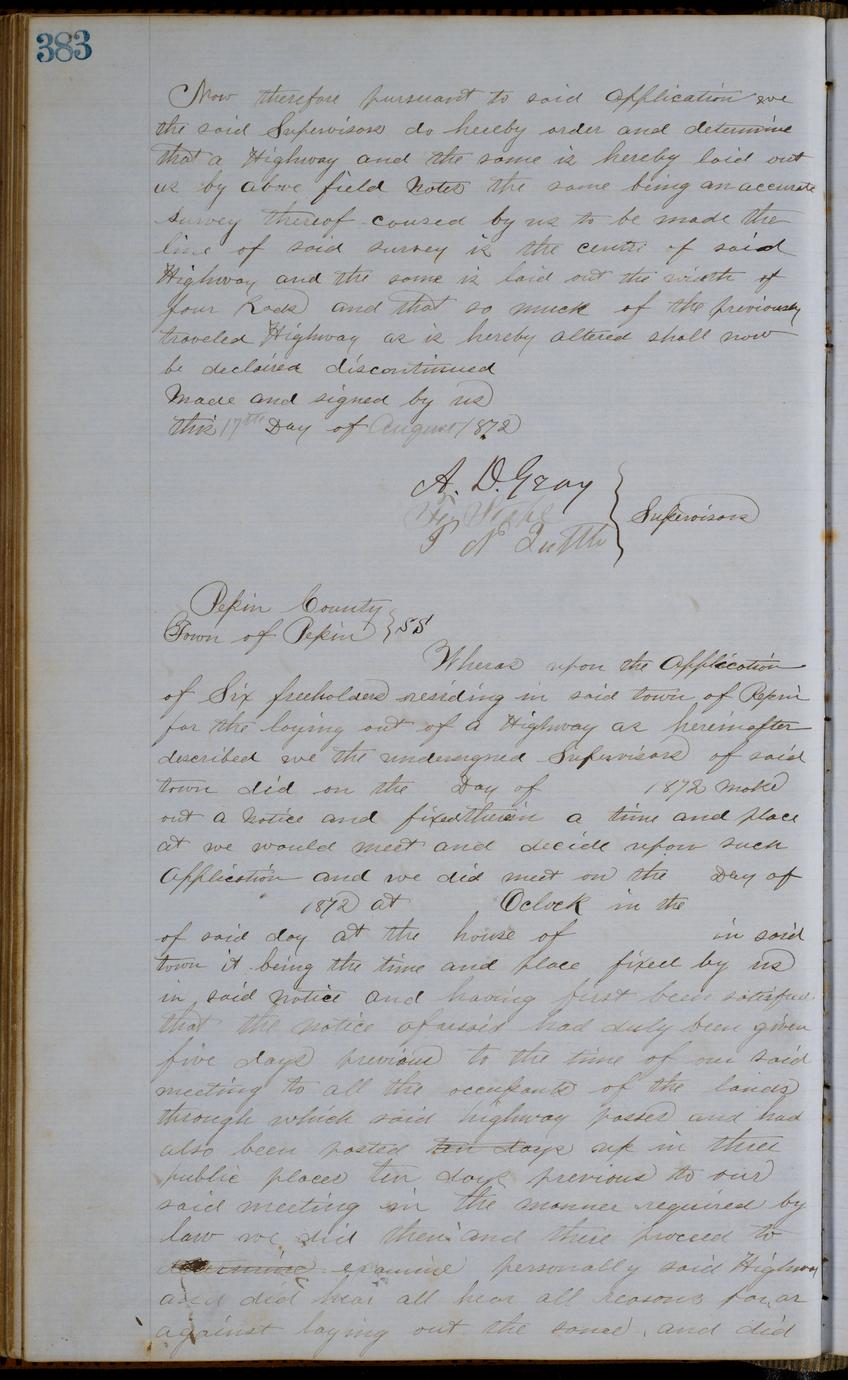 383
Now therefore pursuant to said Application we
the said Supervisors do hereby order and determine
that a Highway and the same is hereby laid out
as by above field Notes the same being an accurate
survey thereof caused by us to be made the
line of said survey is the centre of said
Highway and the same is laid out the width of
four Rods and that so much of the previously
traveled Highway as is hereby altered shall now
be declaired discontinued
Made and signed by us
this 17th Day of August 1872
A. D. Gray
Supervisors
Pepin County
Town of Pepin } SS
Wheras upon the Application
of Six freeholders residing in said town of Pepin
for the laying out of a Highway as hereinafter
described we the undersigned Supervisors of said
town did on the Day of 1872 make
out a Notice and fixed therein a time and place
at we would meet and decide upon such
Application and we did meet on the Day of
1872 at Oclock in the
of said day at the house of in said
town it being the time and place fixed by us
in said Notice and having first been satisfied
that the notice afarsaid had duly been given
five days previous to the time of our said
meeting to all the occupants of the lands
through which said highway passes and had
also been posted ten days up in three
public places ten days previous to our
said meeting in the manner required by
law we did then and there proceed to
examine personally said Highway
and did hear all hear all reasons for or
against laying out the same and did